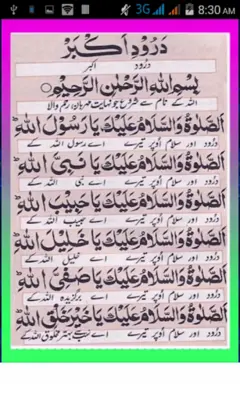 3G 8:30 AM
دُرُودِ اَکبَر
درود اکبر
بِسْمِ اللهِ الرَّحْمٰنِ الرَّحِيْمِ
اللہ کے نام سے شروع جو نہایت مہربان رحم والا
اَلصَّلٰوةُ وَالسَّلَامُ عَلَيْكَ يَا رَسُوْلَ اللهِ
درود اور سلام اُوپر تیرے اے رسول اللہ کے
اَلصَّلٰوةُ وَالسَّلَامُ عَلَيْكَ يَا نَبِيَّ اللهِ
درود اور سلام اُوپر تیرے اے نبی اللہ کے
اَلصَّلٰوةُ وَالسَّلَامُ عَلَيْكَ يَا حَبِيْبَ اللهِ
درود اور سلام اُوپر تیرے اے حبیب اللہ کے
اَلصَّلٰوةُ وَالسَّلَامُ عَلَيْكَ يَا خَلِيْلَ اللهِ
درود اور سلام اُوپر تیرے اے خلیل اللہ کے
اَلصَّلٰوةُ وَالسَّلَامُ عَلَيْكَ يَا صَفِيَّ اللهِ
درود اور سلام اُوپر تیرے اے برگزیدہ اللہ کے
اَلصَّلٰوةُ وَالسَّلَامُ عَلَيْكَ يَا خَيْرَ خَلْقِ اللهِ
درود اور سلام اُوپر تیرے اے بہتر مخلوق اللہ کے